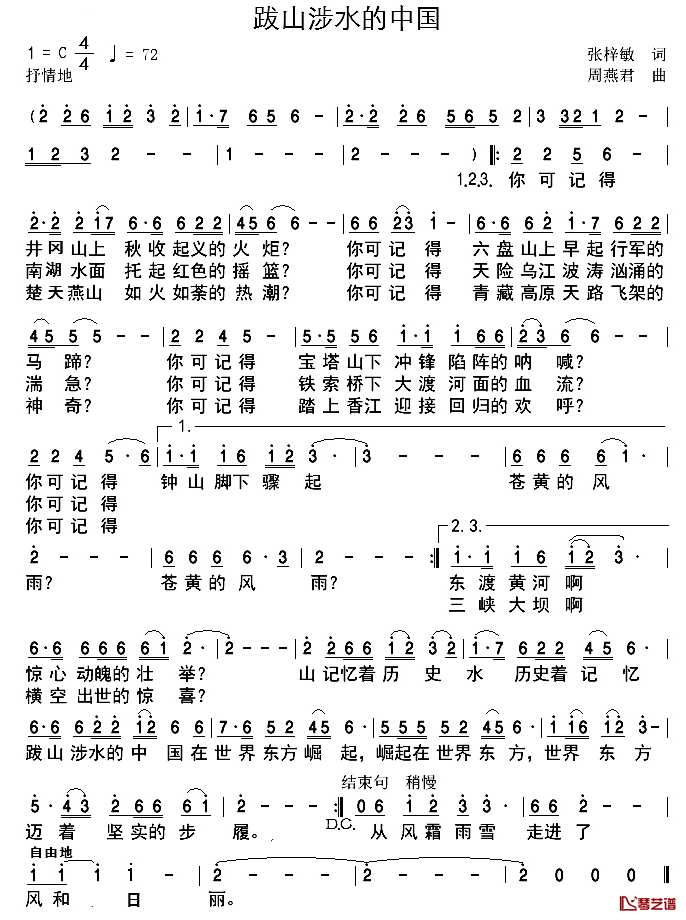 跋山涉水的中国
1 = C 4/4 ♩ = 72
张梓敏 词
抒情地
周燕君 曲
1.2.3. 你可记得
井冈山上 秋收起义的火炬? 你可记得 六盘山上早起行军的
南湖水面 托起红色的摇篮? 你可记得 天险乌江波涛汹涌的
楚天燕山 如火如荼的热潮? 你可记得 青藏高原天路飞架的
马蹄? 你可记得 宝塔山下冲锋陷阵的呐喊?
湍急? 你可记得 铁索桥下大渡河面的血流?
神奇? 你可记得 踏上香江迎接回归的欢呼?
1.
你可记得 钟山脚下骤起 苍黄的风
你可记得
你可记得
2.3.
雨? 苍黄的风 雨? 东渡黄河啊
三峡大坝啊
惊心动魄的壮举? 山记忆着历史水 历史着记忆
横空出世的惊喜?
跋山涉水的中国在世界东方崛起,崛起在世界东方,世界东方
结束句 稍慢
D.C.
迈着坚实的步履。 从风霜雨雪 走进了
自由地
风和日丽。
琴艺谱